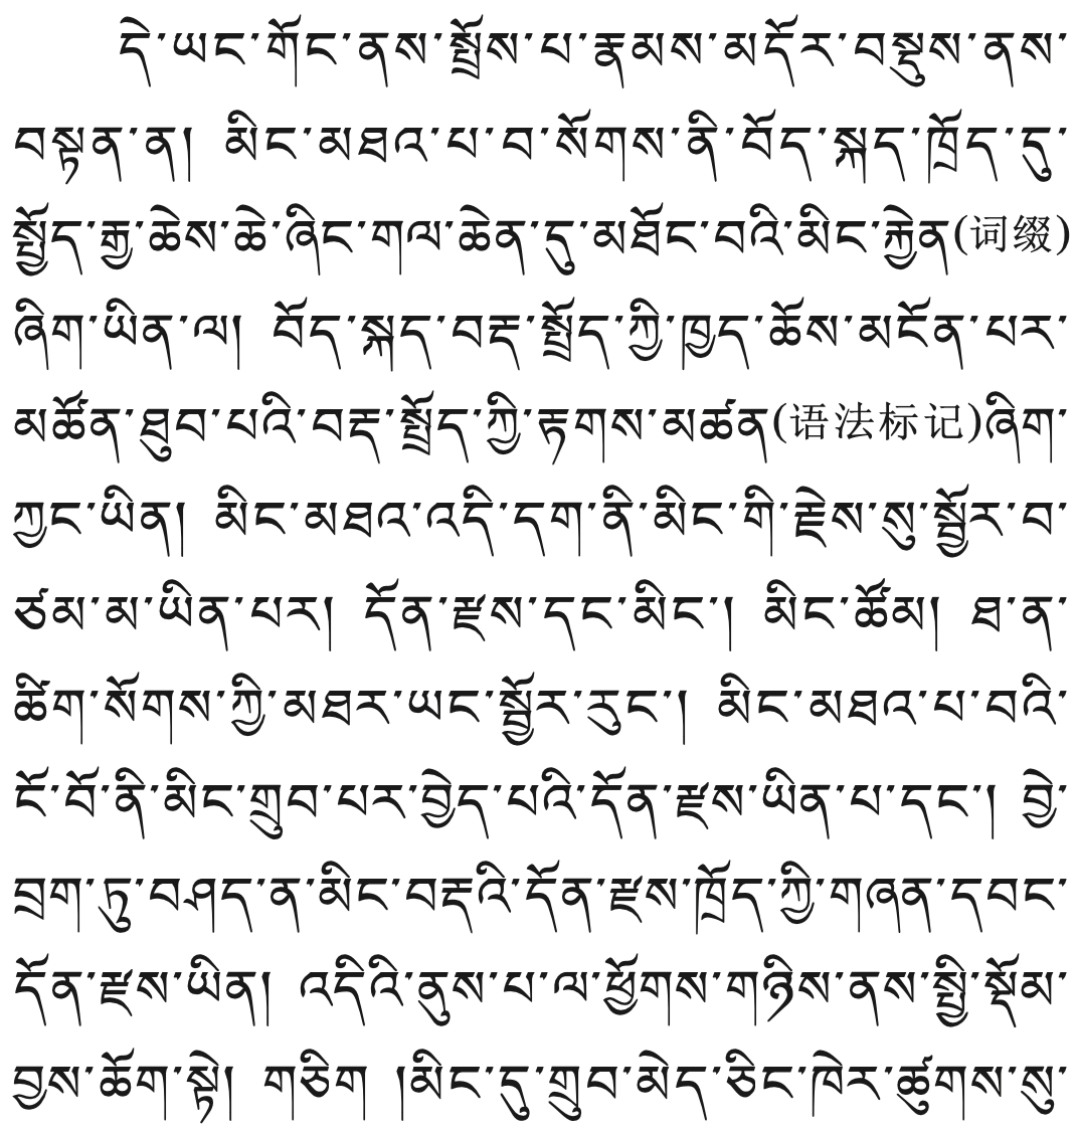 དེ་ཡང་གོང་ནས་སྤྲོས་པ་རྣམས་མདོར་བསྡུས་ནས་
བསྟན་ན། མིང་མཐའ་པ་བ་སོགས་ནི་བོད་སྐད་ཁྲོད་དུ་
སྤྱོད་རྒྱ་ཆེས་ཆེ་ཞིང་གལ་ཆེན་དུ་མཐོང་བའི་མིང་རྐྱེན(词缀)
ཞིག་ཡིན་ལ། བོད་སྐད་བརྡ་སྤྲོད་ཀྱི་ཁྱད་ཆོས་མངོན་པར་
མཚོན་ཐུབ་པའི་བརྡ་སྤྲོད་ཀྱི་རྟགས་མཚན(语法标记)ཞིག་
ཀྱང་ཡིན། མིང་མཐའ་འདི་དག་ནི་མིང་གི་རྗེས་སུ་སྦྱོར་བ་
ཙམ་མ་ཡིན་པར། དོན་རྫས་དང་མིང་། མིང་ཚོམ། ཐ་ན་
ཚིག་སོགས་ཀྱི་མཐར་ཡང་སྦྱོར་རུང་། མིང་མཐའ་པ་བའི་
ངོ་བོ་ནི་མིང་གྲུབ་པར་བྱེད་པའི་དོན་རྫས་ཡིན་པ་དང་། བྱེ་
བྲག་ཏུ་བཤད་ན་མིང་བརྡའི་དོན་རྫས་ཁྲོད་ཀྱི་གཞན་དབང་
དོན་རྫས་ཡིན། འདིའི་ནུས་པ་ལ་ཕྱོགས་གཉིས་ནས་སྤྱི་སྡོམ་
བྱས་ཆོག་སྟེ། གཅིག །མིང་དུ་གྲུབ་མེད་ཅིང་ཁེར་ཚུགས་སུ་